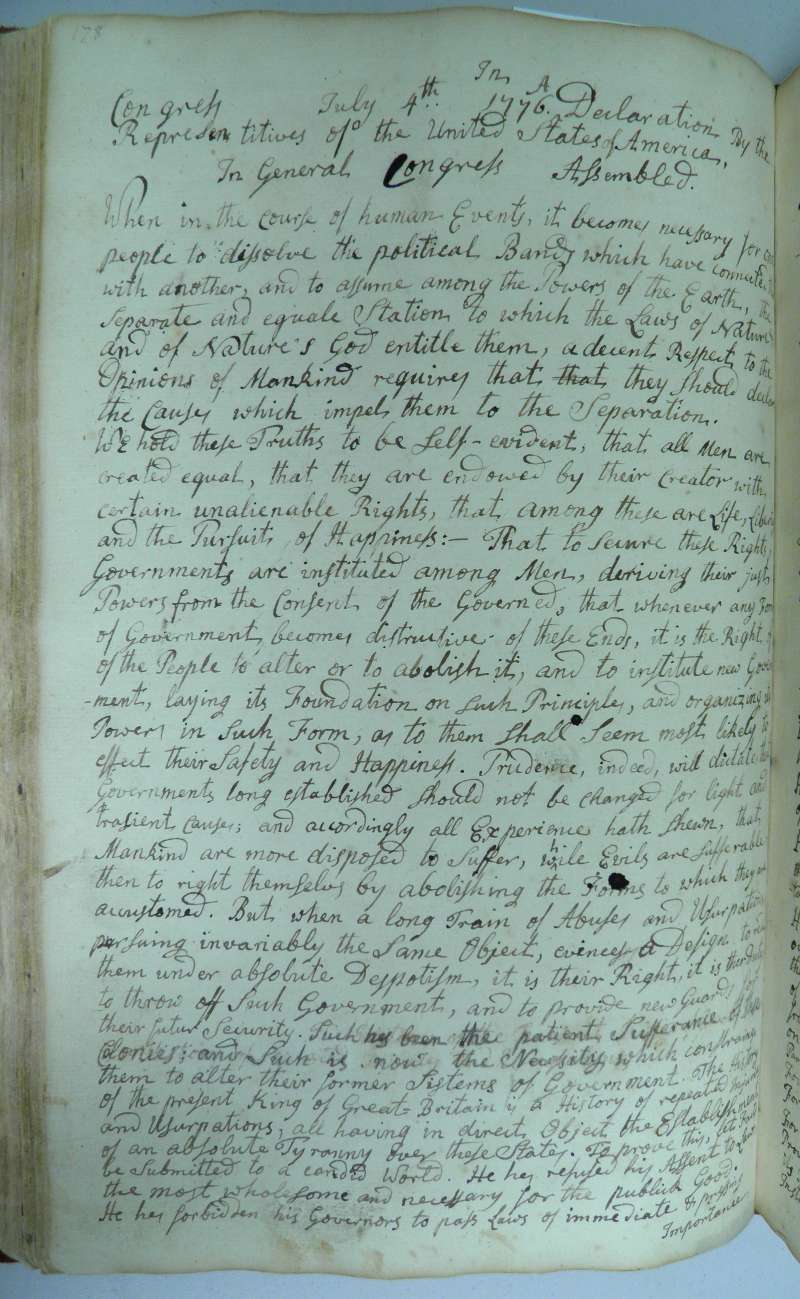 178
In
Congress July 4th 1776. A Declaration By the
Representitives of the United States of America,
In General Congress Assembled.
When in the course of human Events, it becomes necessary for one
people to dissolve the political Bands which have connected
with another, and to assume among the Powers of the Earth, the
Separate and equale Station to which the Laws of Nature
and of Nature's God entitle them, a decent Respect to the
Opinions of Mankind requires that that they should declare
the Causes which impel them to the Separation.
We hold these Truths to be Self-evident, that all Men are
created equal, that they are endowed by their Creator with
certain unalienable Rights, that among these are Life, Liberty
and the Pursuit of Happiness:— That to Secure these Rights,
Governments are instituted among Men, deriving their just
Powers from the Consent of the Governed, that whenever any Form
of Government becomes distructive of these Ends, it is the Right
of the People to alter or to abolish it, and to institute new Govern
-ment, laying its Foundation on such Principles, and organizing its
Powers in Such Form, as to them Shall Seem most likely to
effect their Safety and Happiness. Prudence, indeed, will dictate that
Governments long established Should not be changed for light and
trasient Causes; and accordingly all Experience hath shewn, that
Mankind are more disposed to Suffer, while Evils are Sufferable
then to right themselvs by abolishing the Forms to which they are
accustomed. But when a long Train of Abuses and Usurpations
persuing invariably the Same Object, evinces a Design to
them under absolute Despotism, it is their Right, it is their Duty
to throw off Such Government, and to provide new Guards for
their futur Security. Such has been the patient Sufferance of these
Colonies; and Such is now the Necessity which constrains
them to alter their former Sistems of Government. The History
of the present King of Great-Britain is a History of repeated Injuries
and Usurpations, all having in direct Object the Establishment
of an absolute Tyranny over these States. To prove this, let Facts
be Submitted to a candid World. He has refused his Assent to Laws
the most wholesome and necessary for the publick Good.
He has forbidden his Governors to pass Laws of immediate & pressing
Importance